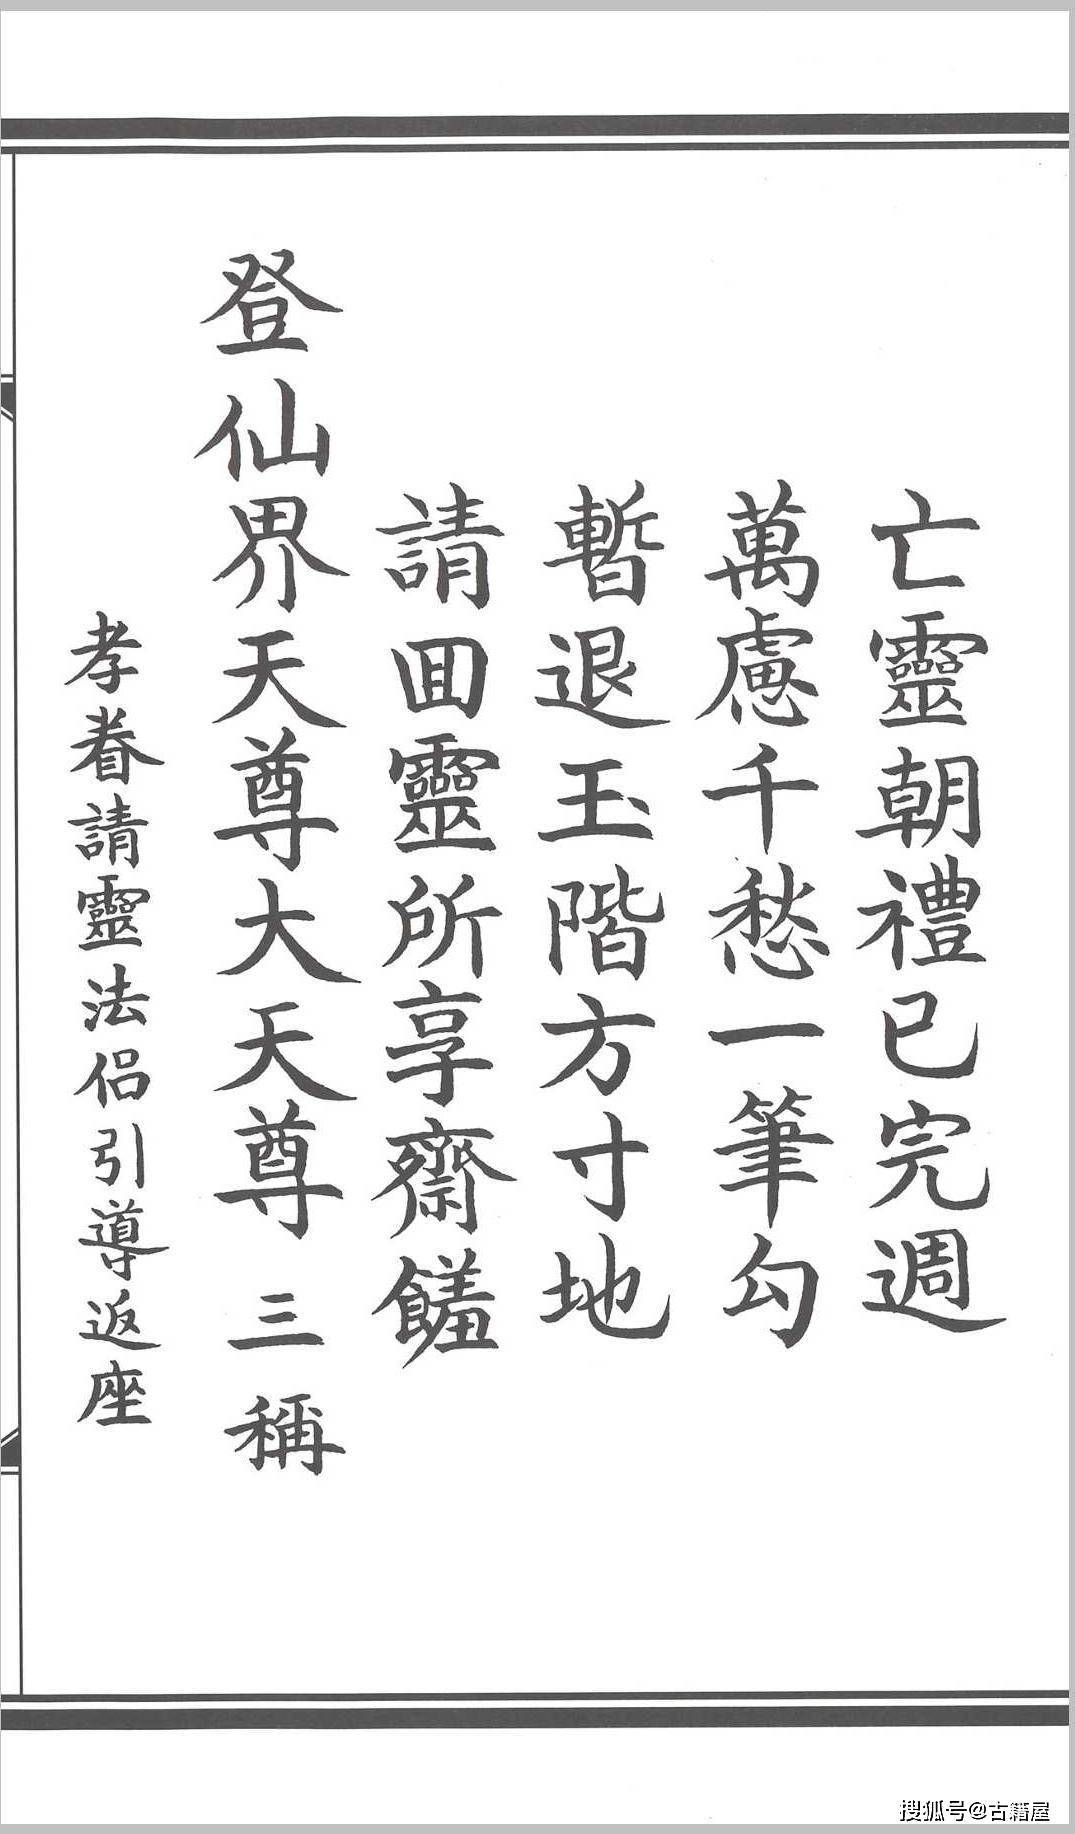 亡靈朝禮已完週
萬慮千愁一筆勾
暫退玉階方寸地
請囬靈所享齋饈
登仙界天尊大天尊 三稱
孝眷請靈法侶引導返座
搜狐号@古籍屋